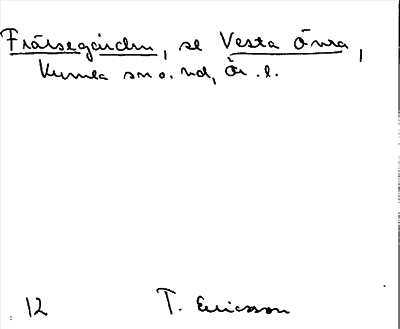 Frälsegården, se Vesta Övra,
Kumla sn o. hd, Ör. l.
12 T. Ericsson